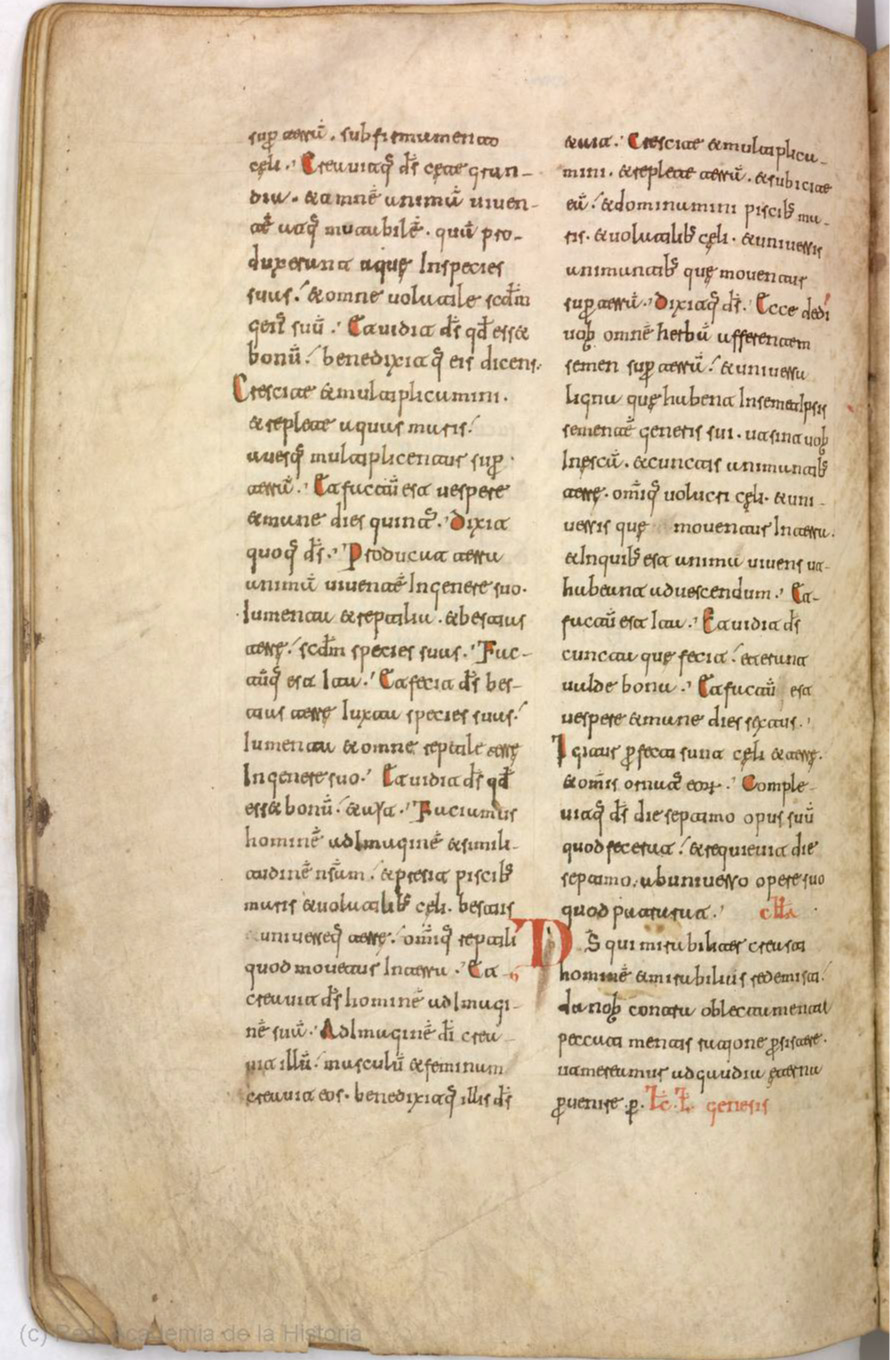 sup̱ terrā. sub firmamento
cęli. Creauitq; d̄s cęte gran-
dia. & omnē animā uiuen-
tē atq; mutabilē. quā pro-
duxerunt aquę In species
suas. & omne uolatile sc̄dm
gen̄ suū. Et uidit d̄s qd̄ ess&
bonū. benedixitq; eis dicens.
Crescite & multiplicamini.
& replete aquas maris.
auesq; multiplicentur sup̱
terrā. Et factū est uespere
& mane dies quint'. Dixit
quoq; d̄s. Producat terra
animā uiuentē In genere suo.
Iumenta & reptilia. & bestias
terrę. sc̄dm species suas. Fac-
tūq; est Ita. Et fecit d̄s bes-
tias terrę Iuxta species suas.
Iumenta & omne reptile terrę
In genere suo. Et uidit d̄s qd̄
ess& bonū. & ait. Faciamus
hominē ad Imaginē & simili-
tudinē nr̄am. & presit piscib;
maris & uolatilib; cęli. bestiis
uniuerseq; terrę. omiq; reptili
quod mouetur In terra. Et
creauit d̄s hominē ad Imagi-
nē suā. Ad Imaginē dī crea-
uit illū. masculū & feminam
creauit eos. benedixitq; illis d̄s
& ait. Crescite & multiplica-
mini. & replete terrā. & subicite
eā. & dominamini piscib; ma-
ris. & uolatilib; cęli. & uniuersis
animantib; quę mouentur
sup̱ terrā. Dixitq; d̄s. Ecce dedi
uob̄ omnē herbā afferentem
semen sup̱ terrā. & uniuersa
ligna quę habent In semetipsis
sementē generis sui. ut sint uob̄
In escā. & cunctis animantib;
terrę. om̄iq; uolucri cęli. & uni-
uersis quę mouentur In terra.
& In quib; est anima uiuens ut
habeant ad uescendum. Et
factū est Ita. Et uidit d̄s
cuncta que fecit. et erant
ualde bona. Et factū est
uespere & mane dies sextus.
Igitur p̱fecti sunt cęli & terrę.
& om̄is ornat' eoꝝ. Comple-
uitq; d̄s die septimo opus suū
quod fecerat. & requieuit die
septimo. ab uniuerso opere suo
quod patrarat.
D̄S qui mirabiliter creasti
hominē & mirabilius redemisti.
da nob̄ contra oblectamenta
peccati mentis ratione p̱sistere.
ut mereamur ad gaudia ęterna
p̱uenire. p̱. Lc̄. L. genesis